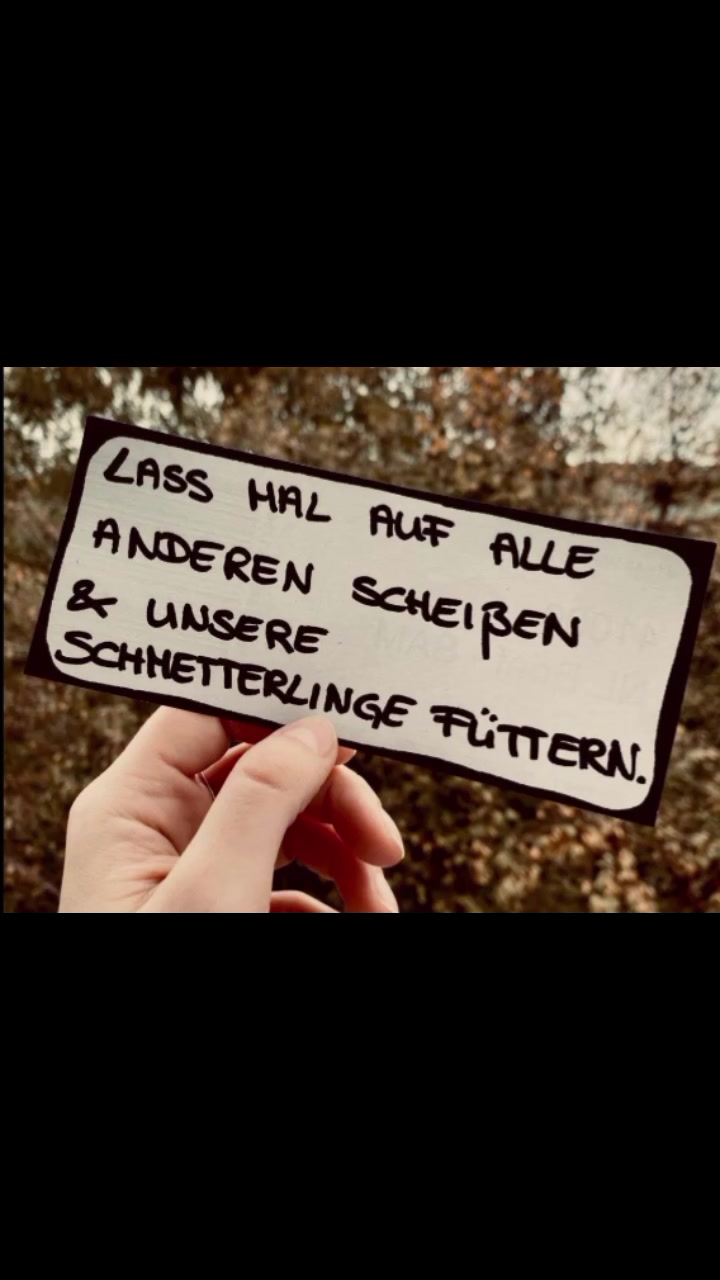 LASS MAL AUF ALLE
ANDEREN SCHEIßEN
& UNSERE
SCHMETTERLINGE FÜTTERN.